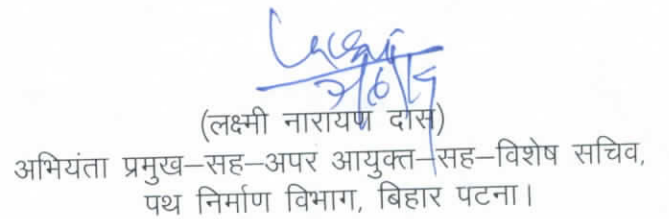 (लक्ष्मी नारायण दास)
अभियंता प्रमुख–सह–अपर आयुक्त–सह–विशेष सचिव,
पथ निर्माण विभाग, बिहार पटना।